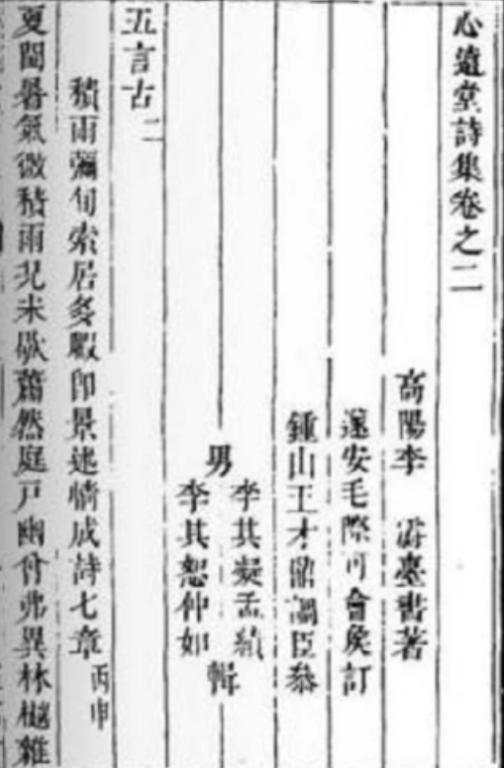 心遠堂詩集卷之二
高陽李　霨臺書著
遂安毛際可會矦訂
鍾山王才鼎臣叅
男
李其凝孟績
李其恕仲如
輯
五言古二
積雨彌旬索居多暇即景述情成詩七章丙申
夏閏暑氣微積雨況未歇蕭然庭戶幽弗異林樾雜